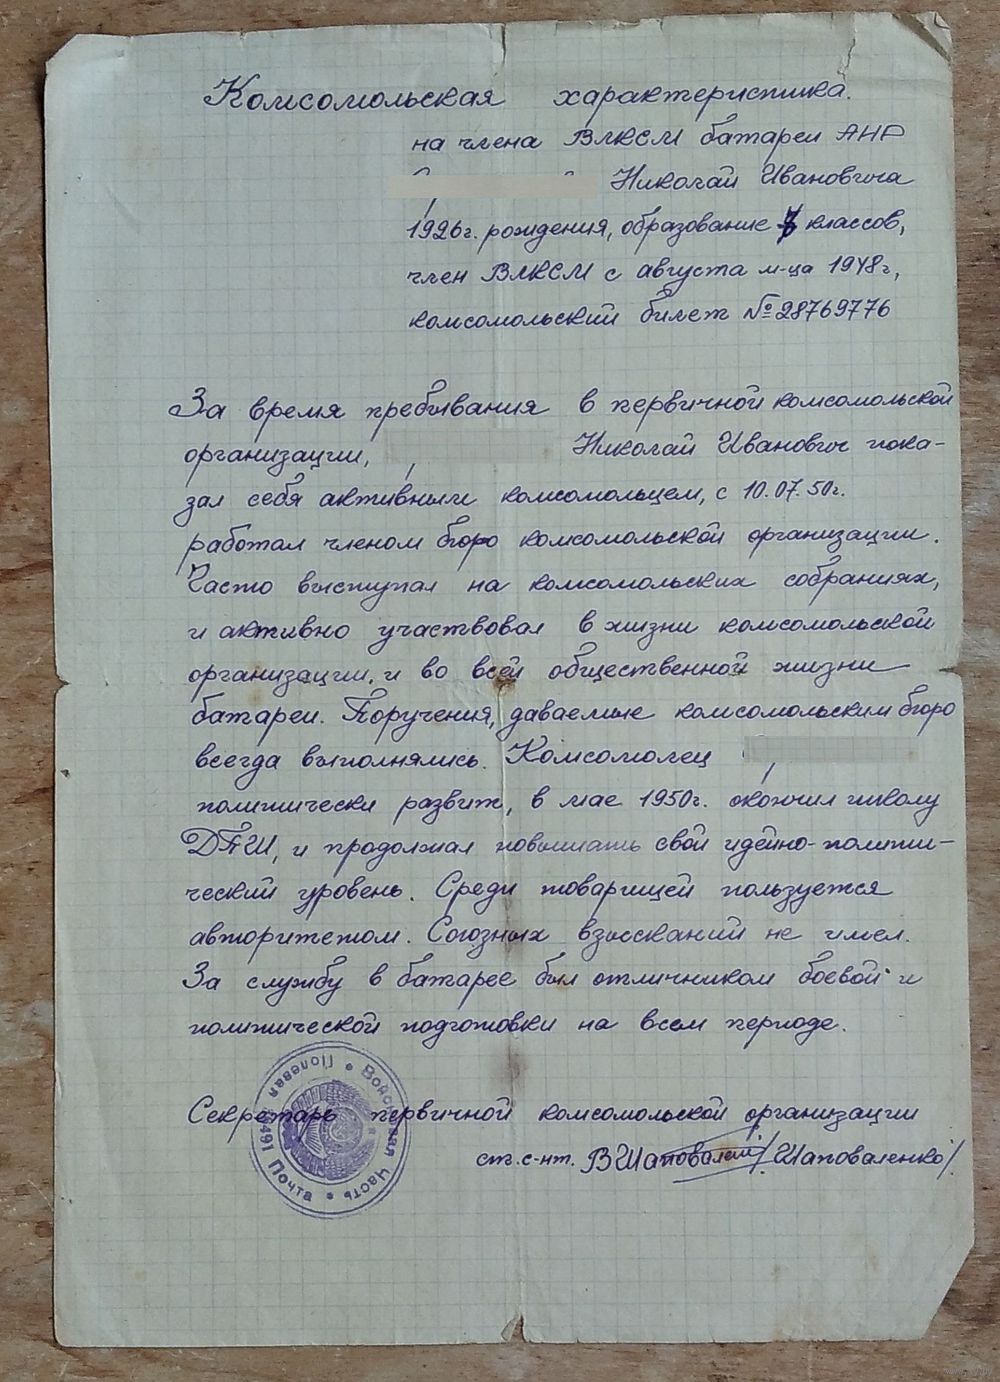 Комсомольская характеристика.
на члена ВЛКСМ батареи АНР
Николай Ивановича
1926г. рождения, образование 7 классов,
член ВЛКСМ с августа м-ца 1948г,
комсомольский билет №28769776
За время пребывания в первичной комсомольской
организации, Николай Иванович пока-
зал себя активным комсомольцем, с 10.07.50г.
работал членом бюро комсомольской организации.
Часто выступал на комсомольских собраниях,
и активно участвовал в жизни комсомольской
организации, и во всей общественной жизни
батареи. Поручения, даваемые комсомольским бюро
всегда выполнялись. Комсомолец
политически развит, в мае 1950г. окончил школу
ДПШ, и продолжал повышать свой идейно-полити-
ческий уровень. Среди товарищей пользуется
авторитетом. Союзных взысканий не имел.
За службу в батарее был отличником боевой и
политической подготовки на всем периоде.
Секретарь первичной комсомольской организации
ст. с-нт. ВШаповален /Шаповаленко/.
Войсковая Часть • Полевая Почта